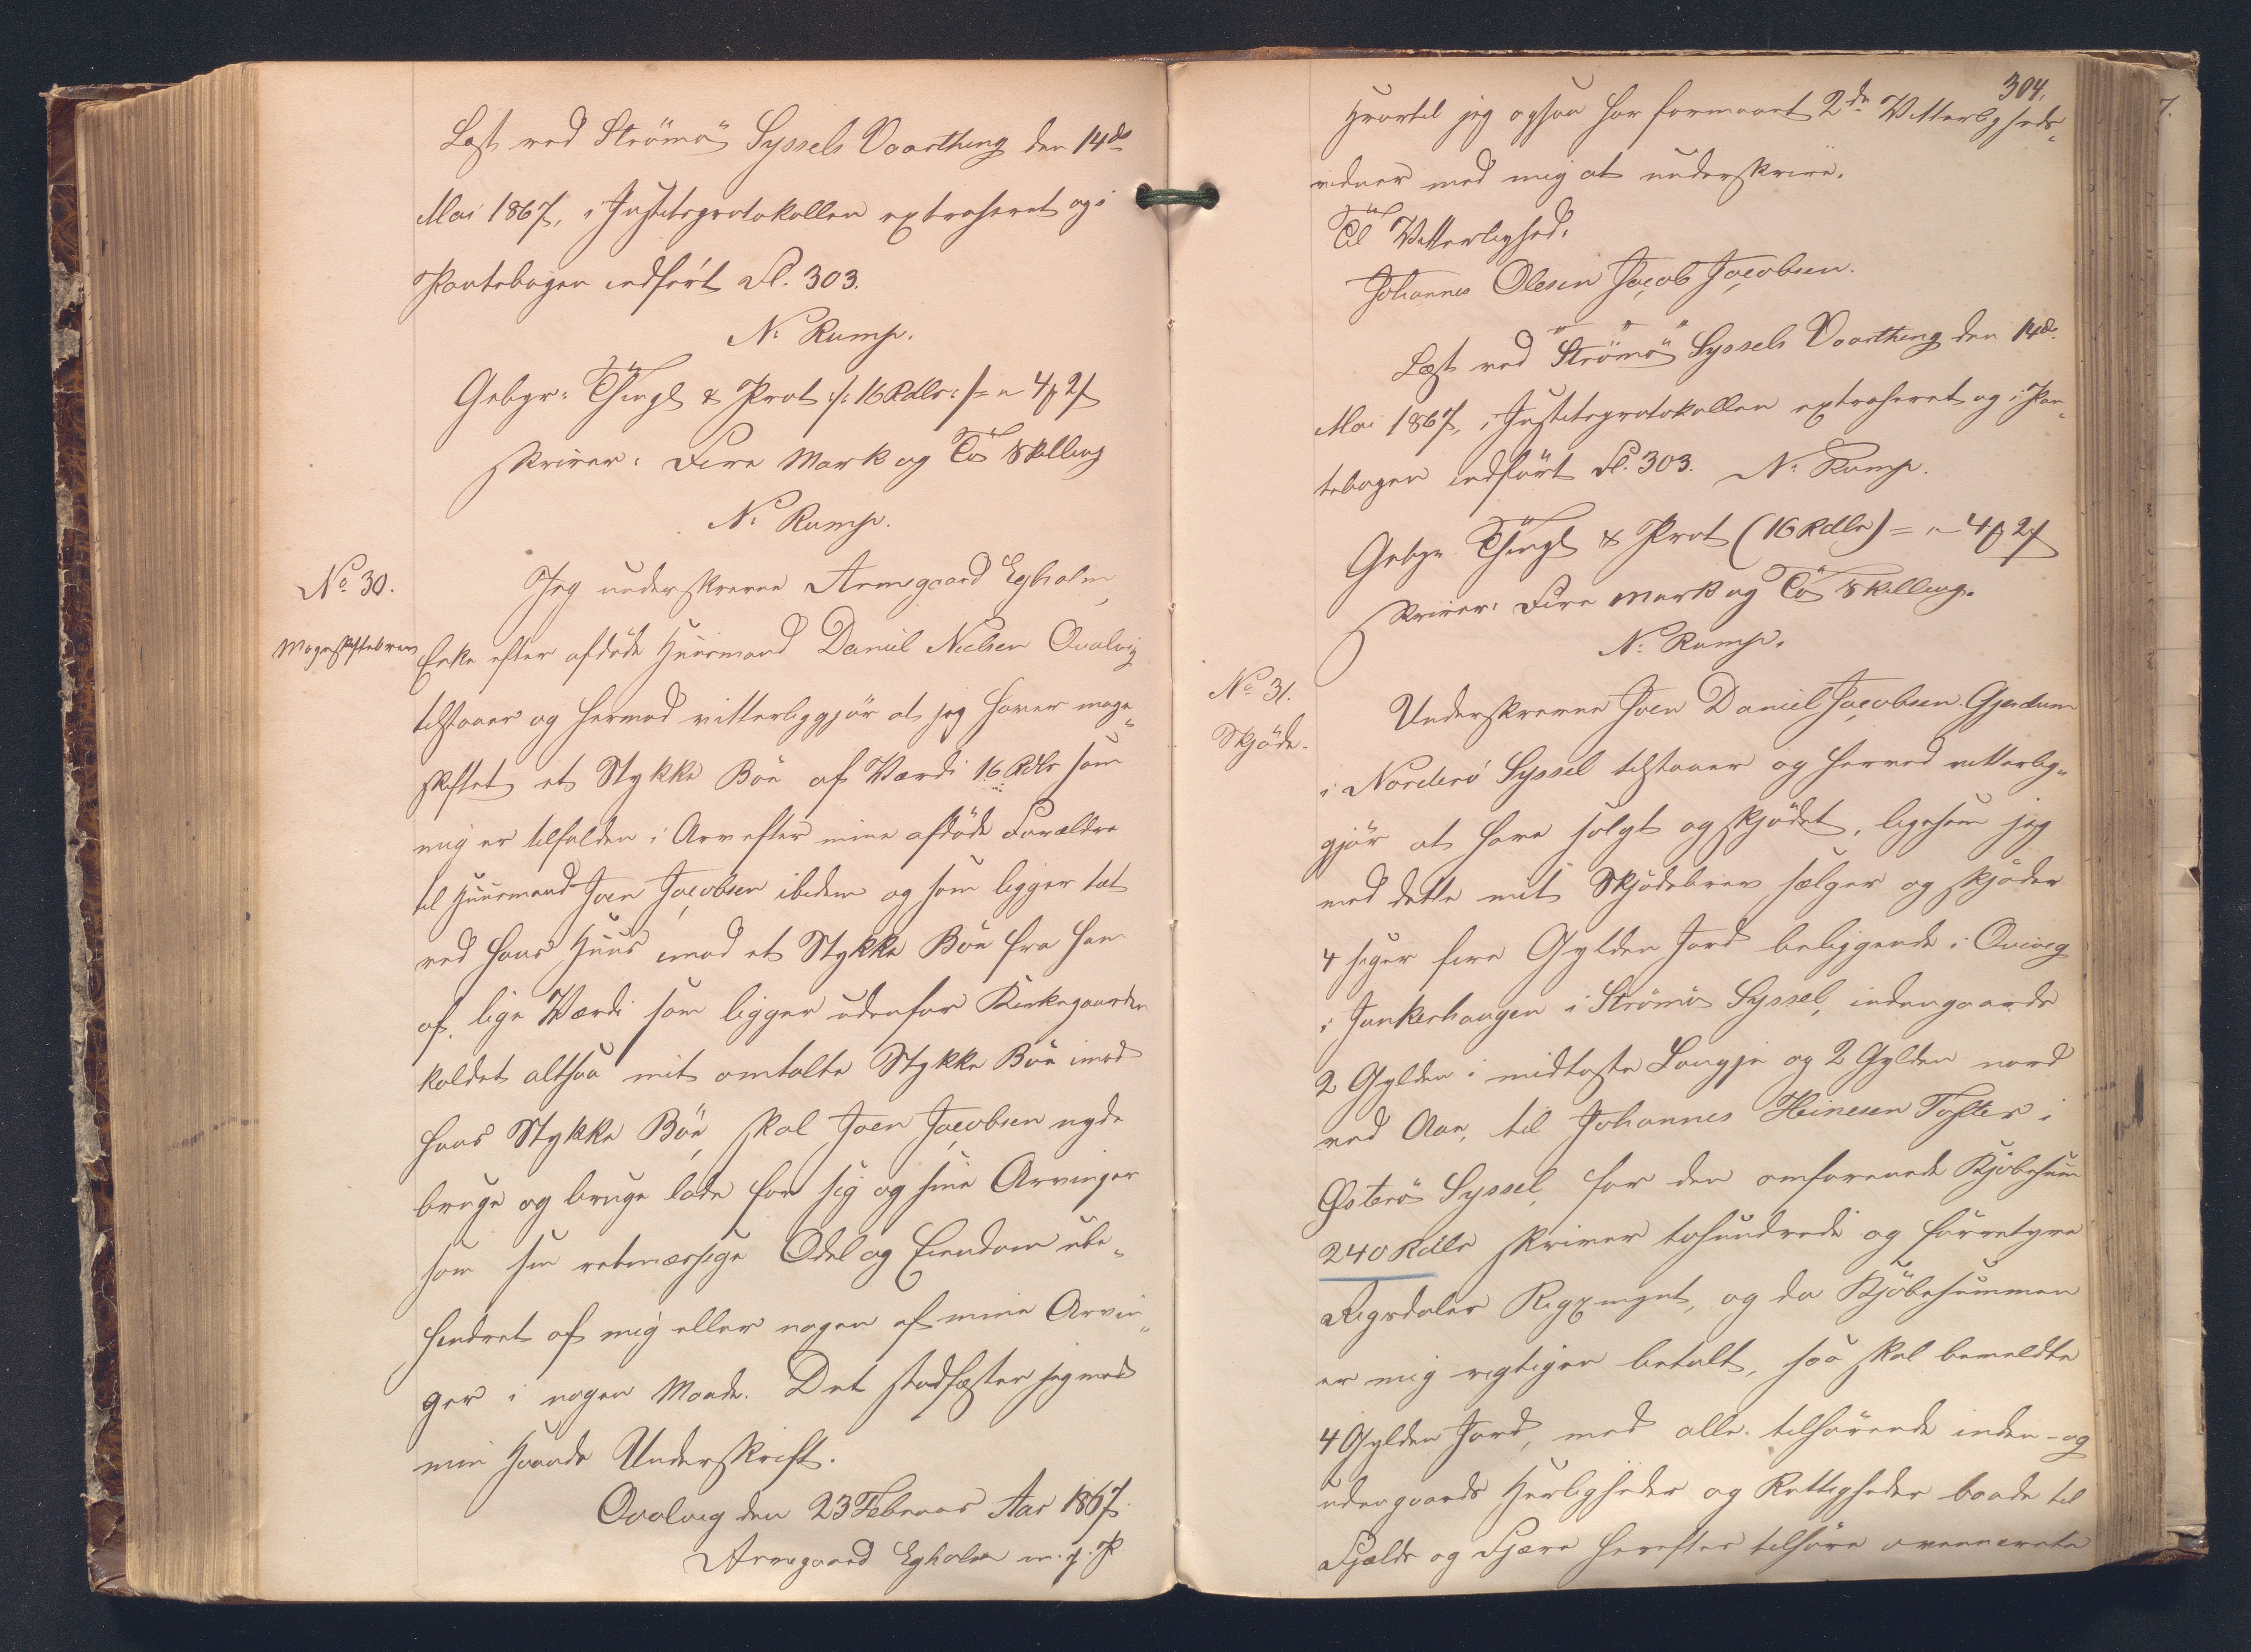 Læst ved Strömö Syssels Vaarthing den 14de
Mai 1867, i Justitsprotokollen extraheret og i
Pantebogen indfört Fl. 303.
N. Rump.
Gebyr: Thingl & Prot ./: 16 Rdlr :/ = " 4 ₻ 2 ẞ
skriver: Fire Mark og To Skilling
N. Rump.
No 30.
Mageskiftebrev
Jeg underskrevne Armgaard Egholm
Enke efter afdöde Huusmand Daniel Nielsen Qvalvig
tilstaaer og hermed vitterliggjör at jeg haver mage"
skiftet et Stykke Böe af Værdi 16 Rdlr som
mig er tilfalden i Arv efter mine afdöde Forældre
til Huusmand Joen Jacobsen ibidem og som ligger tæt
ved hans Huus imod et Stykke Böe fra ham
af lige Værdi som ligger udenfor Kirkegaarden
kaldet altsaa mit omtalte Stykke Böe imod
hans Stykke Böe, skal Joen Jacobsen nyde
bruge og bruge lade for sig og sine Arvinger
som sin retmæssige Odel og Eiendom ube"
hindret af mig eller nogen af mine Arvin"
ger i nogen Maade. Det stadfæster jeg med
min Haands Underskrift.
Qvalvig den 23 Februar Aar 1867
Armgaard Egholm m. f. P.
304.
Hvortil jeg ogsaa har formaaet 2de Vitterligheds"
vidner med mig at underskrive.
Til Vitterlighed:
Johannes Olesen Jacob Jacobsen.
Læst ved Strömö Syssels Vaarthing den 14de
Mai 1867, i Justitsprotokollen extraheret og i Pan"
tebogen indfört Fl. 303. N. Rump.
Gebyr Thingl & Prot (16 Rdlr) = " 4 ₻ 2 ẞ
skriver: Fire Mark og To Skilling.
N. Rump.
No 31.
Skjöde.
Underskrevne Joen Daniel Jacobsen Gjerdum
i Norderö Syssel tilstaaer og herved vitterlig"
gjör at have solgt og skjödet, ligesom jeg
med dette mit Skjödebrev sælger og skjöder
4 siger fire Gylden Jord beliggende i Qvivig
i Junkerhaugen i Strömö Syssel, indengaards
2 Gylden i midtaste Laugje og 2 Gylden nord
ved Aae, til Johannes Heinesen Tofter i
Österö Syssel, for den omforenede Kjöbesum
240 Rdlr skriver tohundrede og fürretyve
Rigsdaler Rigsmynt, og da Kjöbesummen
er mig rigtigen betalt, saa skal bemeldte
4 Gylden Jord, med alle tilhörende inden- og
udengaards Herligheder og Rettigheder baade til
Fjælds og Fjære herefter tilhöre ovennævnte